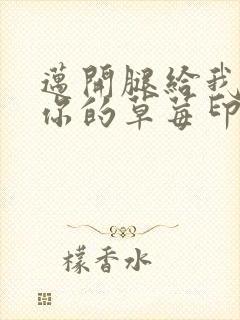 邁開腿給我
你的草莓印
檬香水